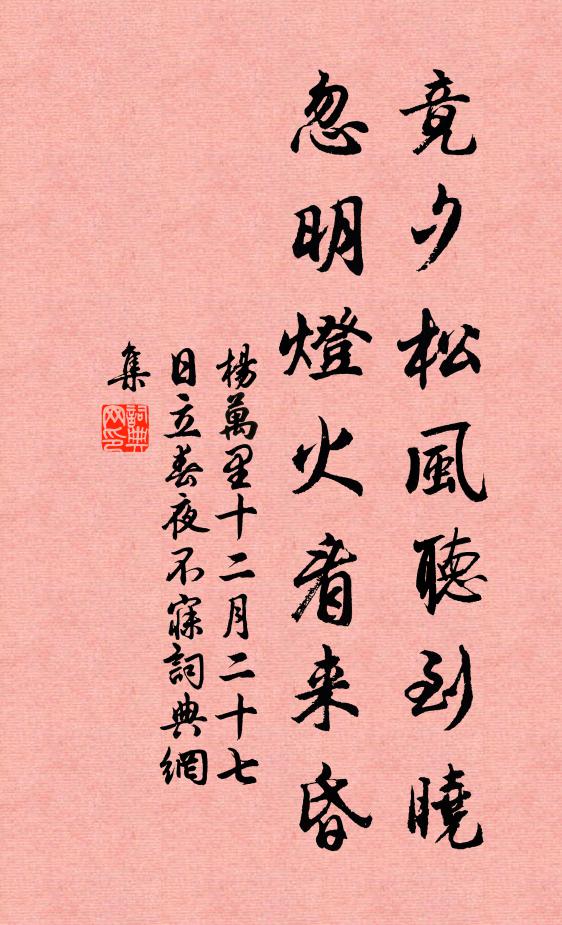 竟夕松風聽到曉
忽明燈火看来昏
楊萬里十二月二十七
日立春夜不寐詞典網
集
詞典網印